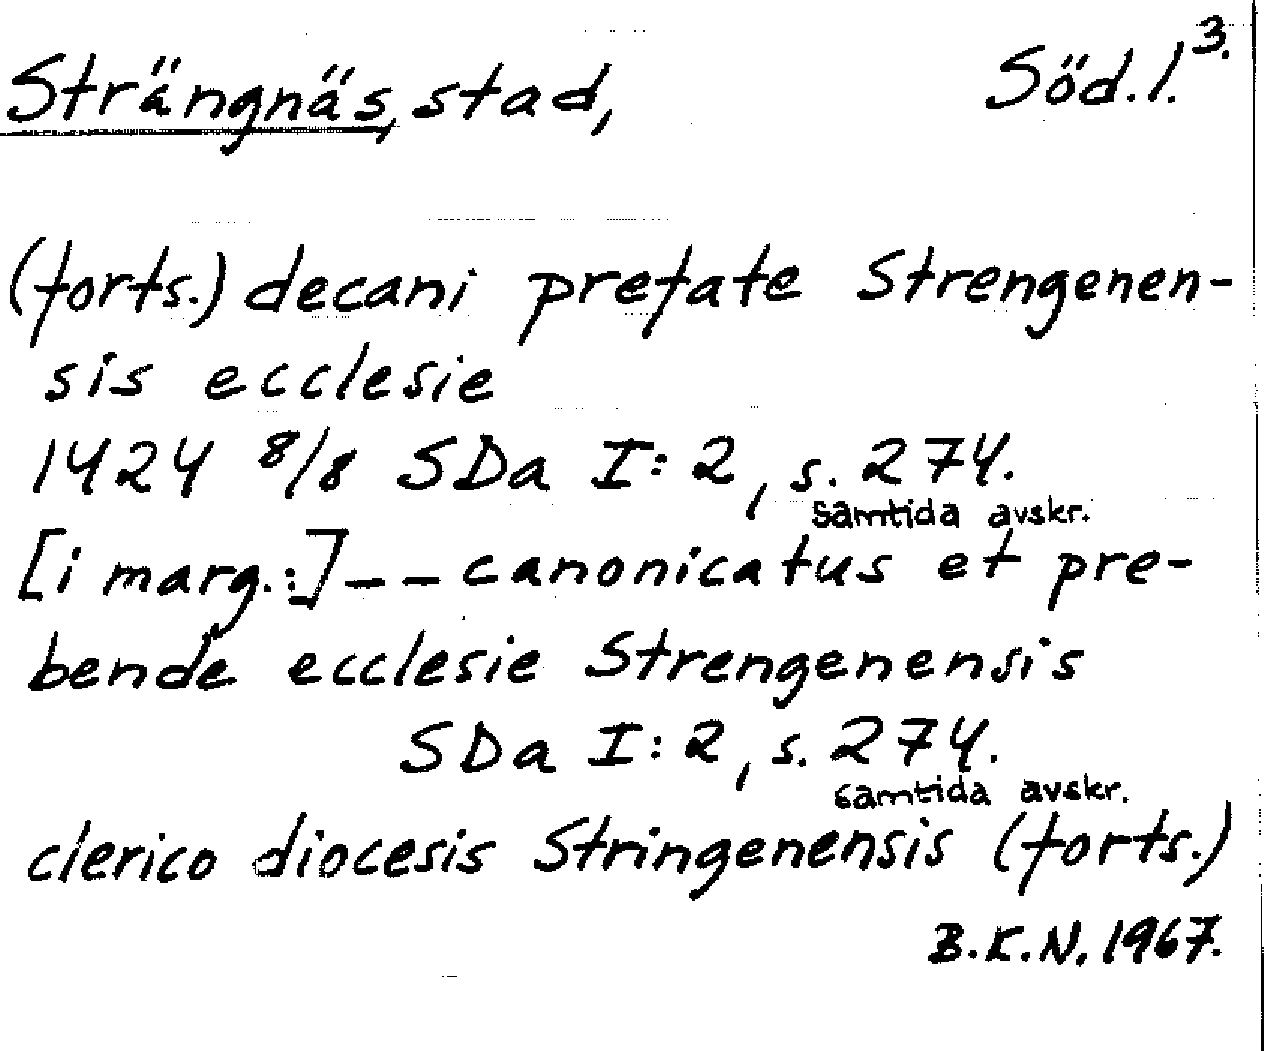 Strängnäs, stad, Söd.l. 3.
(forts.) decani prefate Strengenen-
sis ecclesie
1424 8/8 SDa I:2, s. 274.
samtida avskr.
[i marg.:] -- canonicatus et pre-
bende ecclesie Strengenensis
SDa I:2, s. 274.
samtida avskr.
clerico diocesis Stringenensis (forts.)
B.K.N. 1967.